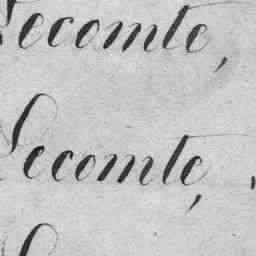 Lecomte,
Lecomte,